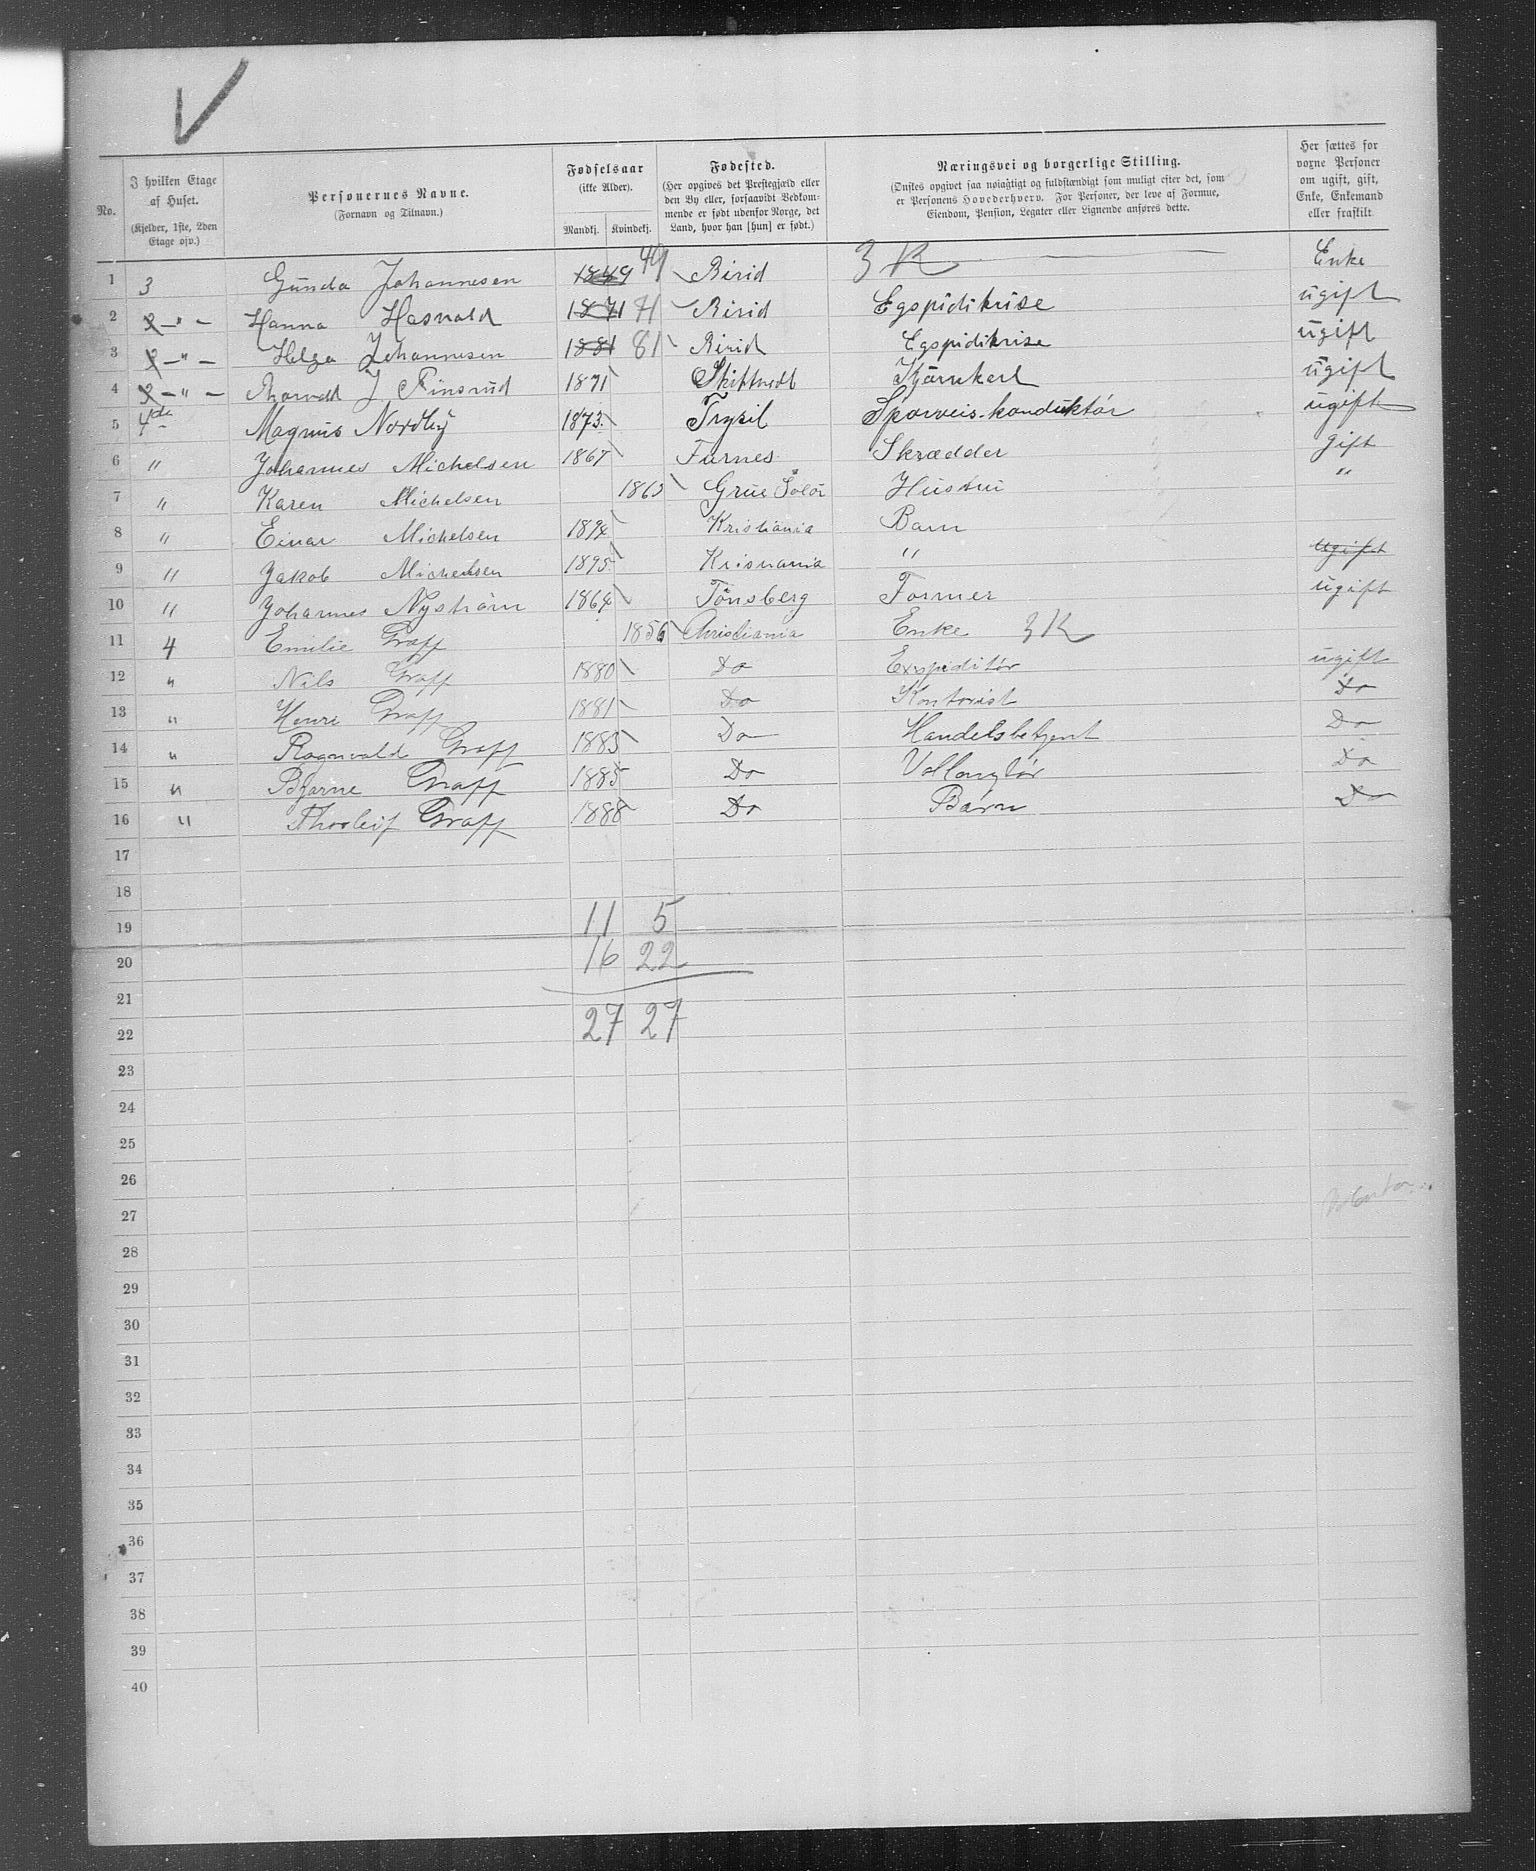 No.
I hvilken Etage af Huset. (Kjelder, 1ste, 2den Etage osv.)
Personernes Navne. (Fornavn og Tilnavn.)
Fødselsaar (ikke Alder). Mandkj. Kvindekj.
Fødested. (Her opgives det Prestegjæld eller den By eller, forsaavidt Vedkommende er født udenfor Norge, det Land, hvor han [hun] er født.)
Næringsvei og borgerlige Stilling. (Ønskes opgivet saa nøiagtigt og fuldstændigt som muligt efter det, som er Personens Hovederhverv. For Personer, der leve af Formue, Eiendom, Pension, Legater eller Lignende anføres dette.)
Her sættes for voxne Personer om ugift, gift, Enke, Enkemand eller fraskilt.
1 3 Gunda Johannesen 1849 49 Birid 3 K Enke
2 2 - " - Hanna 1871 71 Birid Egspiditrise ugift
3 2 - " - Helga Johannesen 1881 81 Birid Egspiditrise ugift
4 2 - " - Thorvald J Finsrud 1871 Kjørekarl ugift
5 4de Magnus Nordby 1873 Trysil Sporveis-konduktør ugift
6 " Johannes Michelsen 1867 Furnes Skrædder gift
7 " Karen Michelsen 1863 Grue Solør Hustru "
8 " Einar Michelsen 1894 Kristiania Barn
9 " Jakob Michelsen 1895 Kristiania " ugift
10 " Johannes Nystrøm 1864 Tønsberg Former ugift
11 4 Emilie Graff 1856 Christiania Enke 3K
12 " Nils Graff 1880 Do Exspeditør ugift
13 " Henri Graff 1881 Do Kontorist Do
14 " Ragnvald Graff 1883 Do Handelsbetjent Do
15 " Bjarne Graff 1885 Do Vollontør Do
16 " Thorleif Graff 1888 Do Barn Do
17
18
19 11 5
20 16 22
21
22 27 27
23
24
25
26
27
28
29
30
31
32
33
34
35
36
37
38
39
40